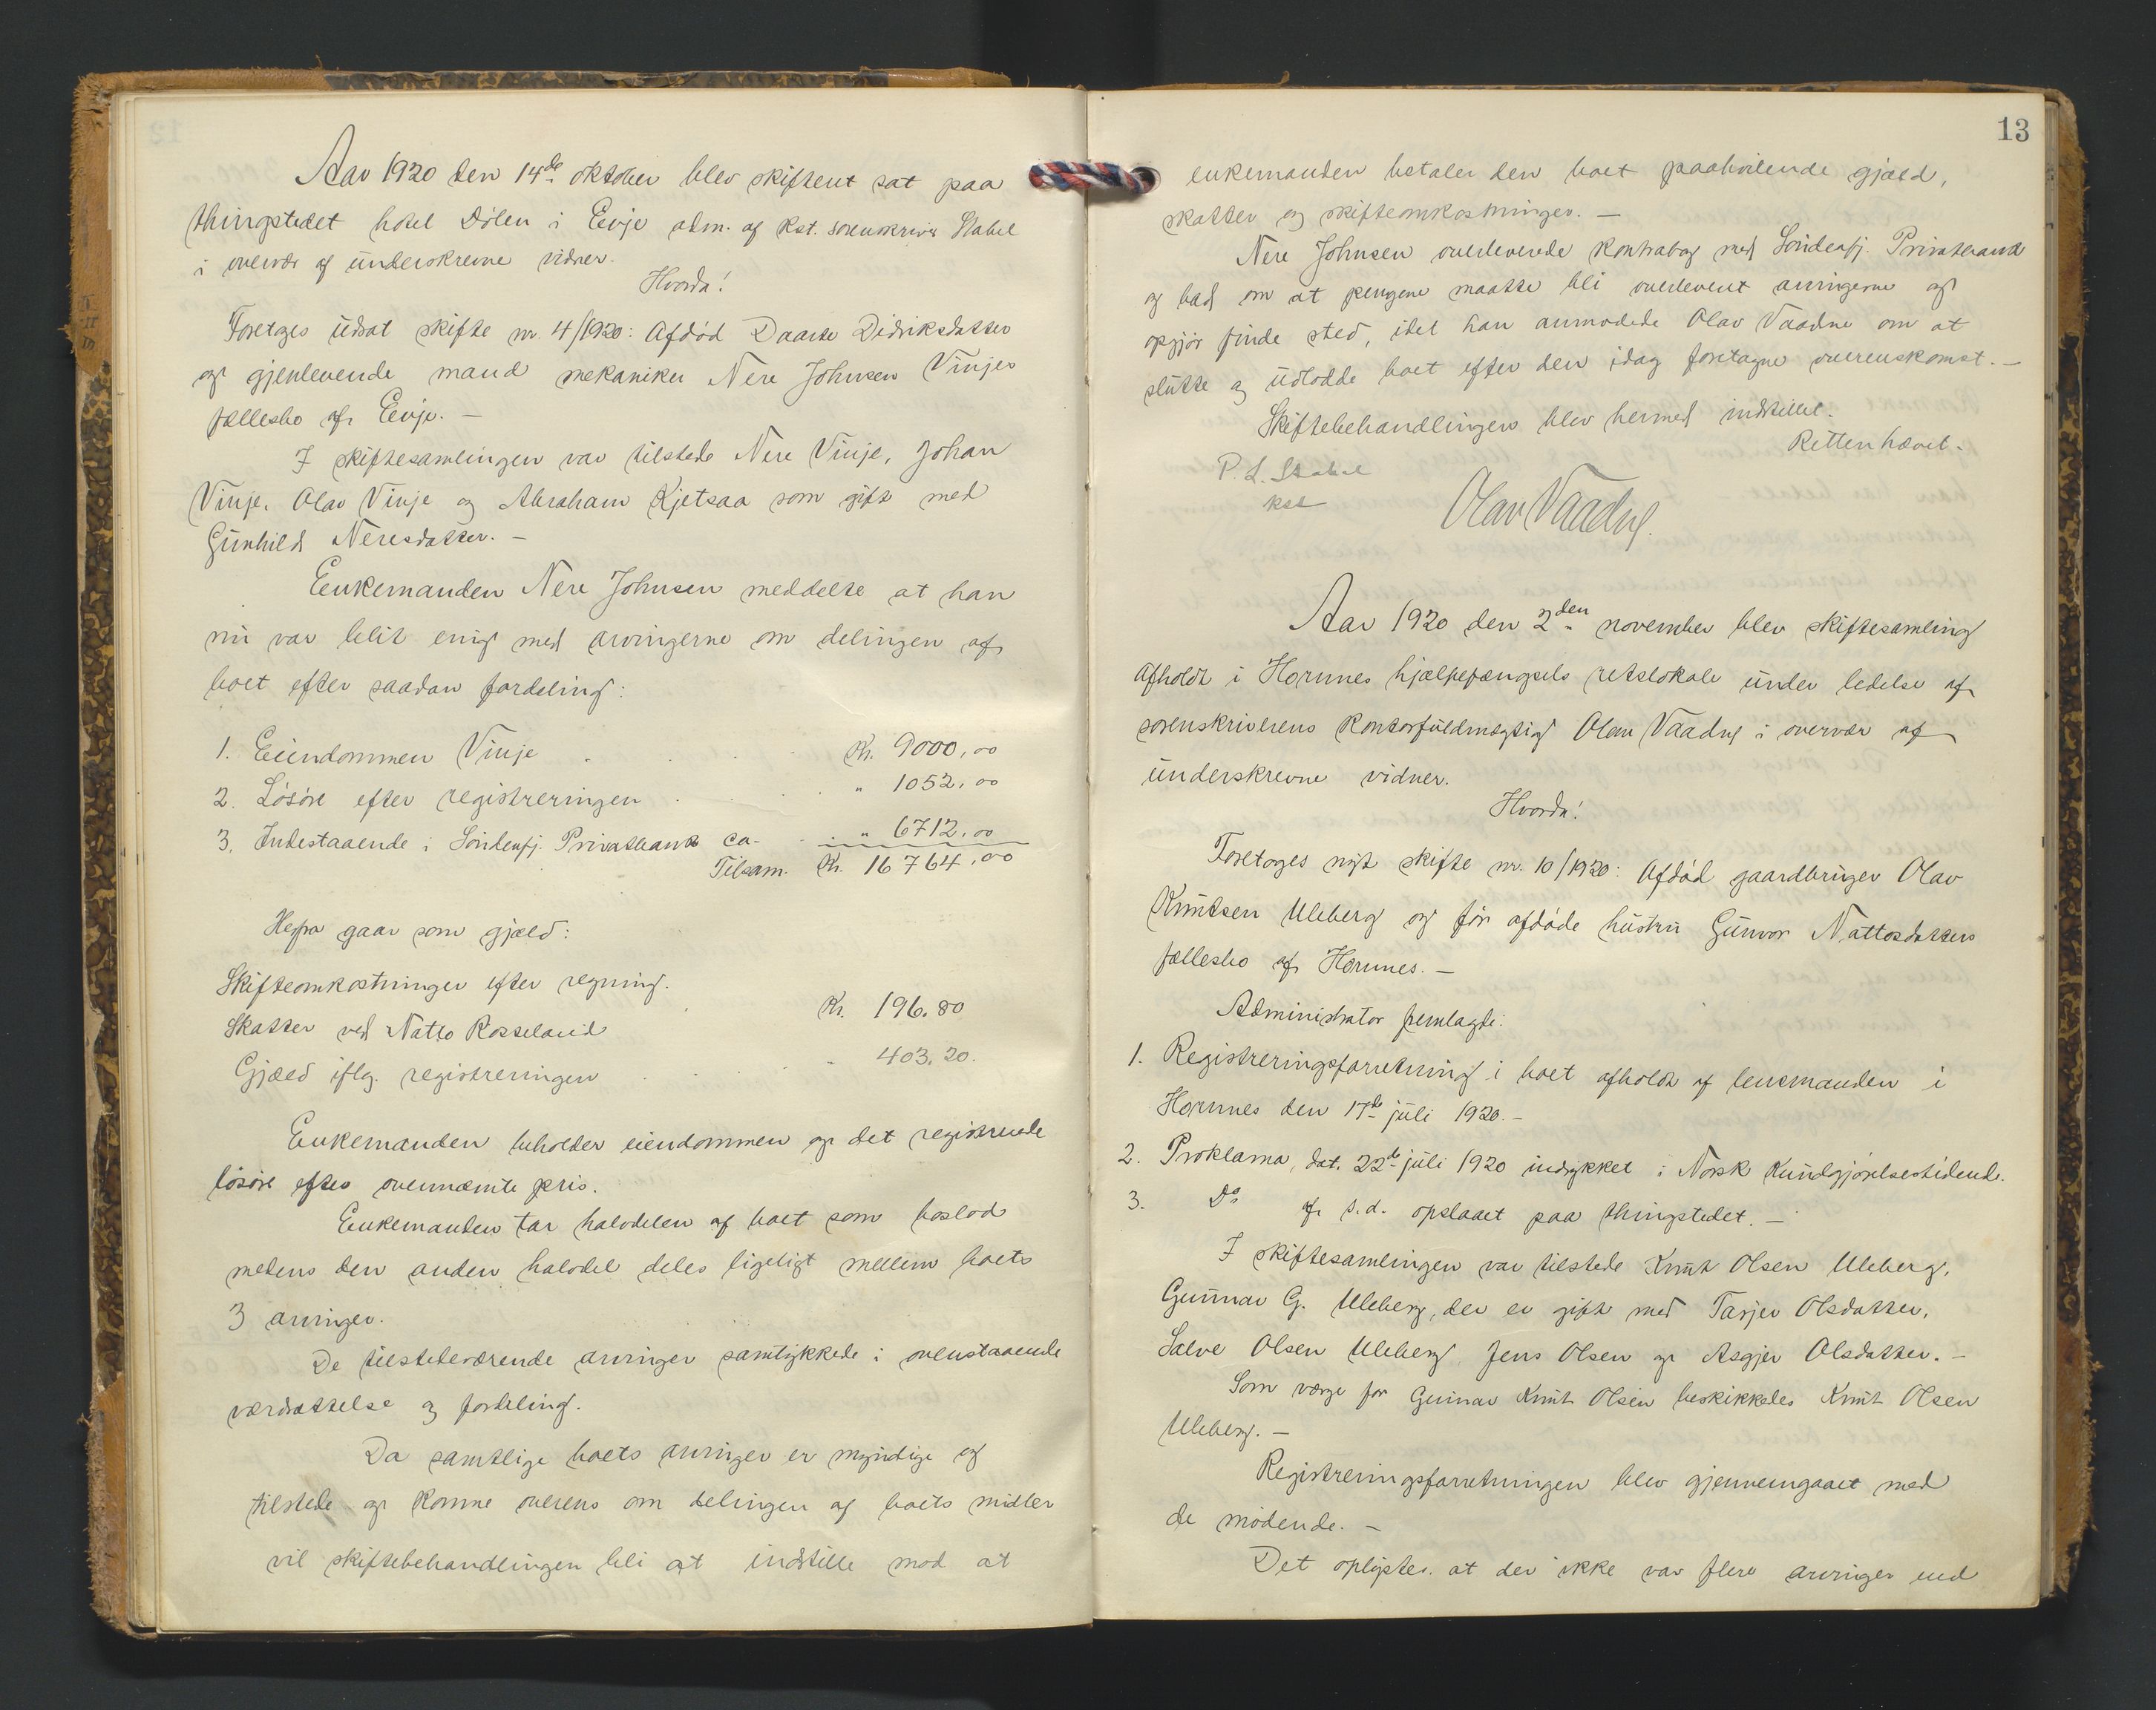 Aar 1920 den 14de oktober blev skifteret sat paa
thingstedet hotel Dølen i Evje adm. af kst. sorenskriver Stabel
i overvær af underskrevne vidner.
Hvorda!
Foretoges utsat skifte nr. 4/1920: Afdød Daarte Didriksdatter
og gjenlevende mand mekaniker Nere Johnsen Vinjes
fællesbo af Evje. —
I skiftesamlingen var tilstede Nere Vinje, Johan
Vinje, Olav Vinje og Abraham Kjetsaa som gift med
Gunhild Neresdatter. —
Enkemanden Nere Johnsen meddelte at han
nu var blit enig med arvingerne om delingen af
boet efter saadan fordeling:
1. Eiendommen Vinje . . . Kr. 9000,00
2. Løsøre efter registreringen . . . " 1052,00
3. Indestaaende i Søndenfj. Privatbank ca. . " 6712,00
Tilsam. Kr. 16764,00
Herfra gaar som gjæld:
Skifteomkostninger efter regning.
Skatter ved Natto Rosseland . Kr. 196.80
Gjæld iflg. registreringen . . . " 403.20.
Enkemanden beholder eiendommen og det registrerede
løsøre efter ovennævnte pris.
Enkemanden tar halvdelen af boet som boslod
medens den anden halvdel deles ligeligt mellem boets
3 arvinger.
De tilstedeværende arvinger samtykkede i ovenstaaende
værdsættelse og fordeling.
Da samtlige boets arvinger er myndige og
tilstede og komne overens om delingen af boets midler
vil skiftebehandlingen bli at indstille mod at
13
enkemanden betaler den boet paahvilende gjæld,
skatter og skifteomkostninger. —
Nere Johnsen overleverede kontrabog med Søndenfj. Privatbank
og bad om at pengene maatte bli overlevert arvingerne og
opgjør finde sted, idet han anmodede Olav Vaadne om at
slutte og udlodde boet efter den idag foretagne overenskomst. —
Skiftebehandlingen blev hermed indstillet.
Retten hævet.
P. L. Stabel
kst
Olav Vaadne.
Aar 1920 den 2den november blev skiftesamling
afholdt i Hornnes hjælpefængsels retslokale under ledelse af
sorenskriverens kontorfuldmægtig Olav Vaadne i overvær af
underskrevne vidner.
Hvorda!
Foretoges nyt skifte nr. 10/1920: Afdød gaardbruger Olav
Knutsen Uleberg og før afdøde hustru Gunvor Nattosdatters
fællesbo af Hornnes. —
Administrator fremlagde:
1. Registreringsforretning i boet afholdt af lensmanden i
Hornnes den 17de juli 1920. —
2. Proklama, dat. 22de juli 1920 indrykket i Norsk Kundgjørelsestidende.
3. Do af s.d. opslaaet paa thingstedet. —
I skiftesamlingen var tilstede Knut Olsen Uleberg,
Gunnar G. Uleberg, der er gift med Tarjer Olsdatter,
Salve Olsen Uleberg Jens Olsen og Asgjer Olsdatter. —
Som verge for Gunnar Knut Olsen beskikkedes Knut Olsen
Uleberg. —
Registreringsforretningen blev gjennemgaaet med
de mødende. —
Det oplystes at der ikke var flere arvinger end